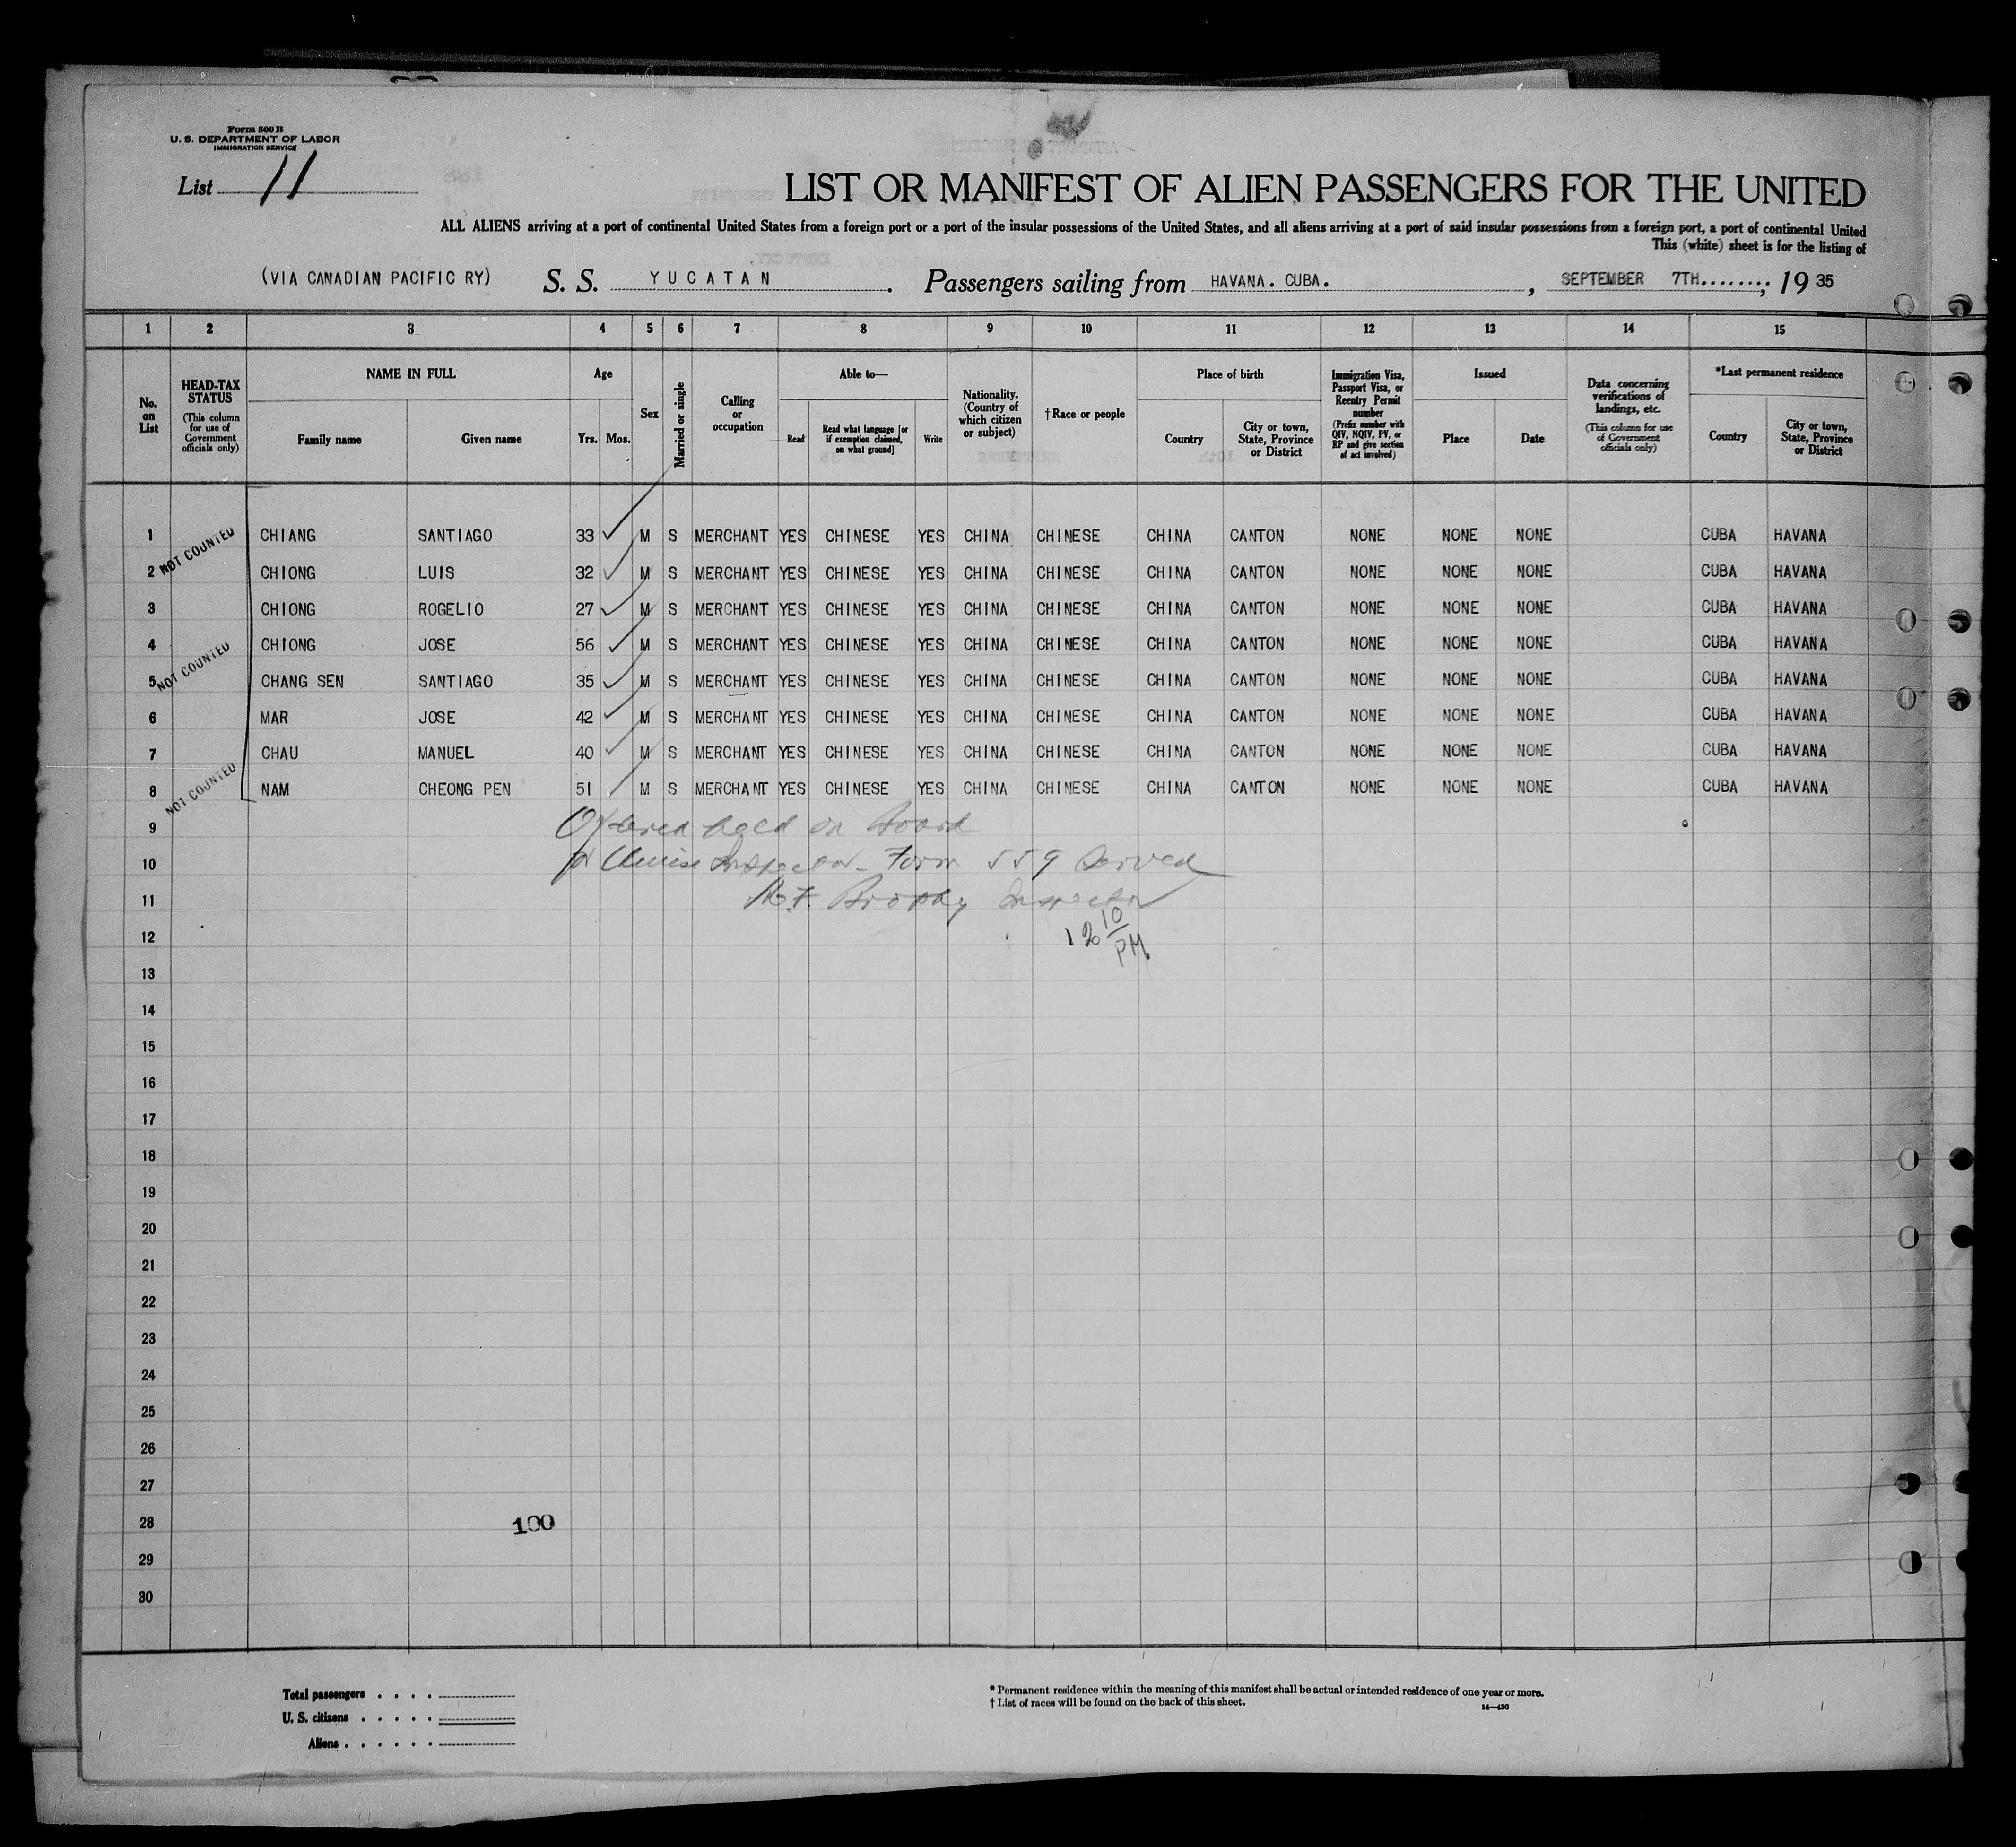 Form 500 B
U. S. DEPARTMENT OF LABOR
IMMIGRATION SERVICE
List 11
LIST OR MANIFEST OF ALIEN PASSENGERS FOR THE UNITED
ALL ALIENS arriving at a port of continental United States from a foreign port or a port of the insular possessions of the United States, and all aliens arriving at a port of said insular possessions from a foreign port, a port of continental United
This (white) sheet is for the listing of
(VIA CANADIAN PACIFIC RY) S. S. YUCATAN. Passengers sailing from HAVANA. CUBA., SEPTEMBER 7TH........; 19 35
1 2 3 4 5 6 7 8 9 10 11 12 13 14 15
No. on List
HEAD-TAX STATUS (This column for use of Government officials only)
NAME IN FULL
Family name Given name
Age
Yrs. Mos.
Sex
Married or single
Calling or occupation
Able to—
Read
Read what language [or if exemption claimed, on what ground]
Write
Nationality. (Country of which citizen or subject)
†Race or people
Place of birth
Country
City or town, State, Province or District
Immigration Visa, Passport Visa, or Reentry Permit number (Prefix number with QIV, NQIV, PV, or RP and give section of act involved)
Issued
Place Date
Data concerning verifications of landings, etc. (This column for use of Government officials only)
*Last permanent residence
Country
City or town, State, Province or District
1 CHIANG SANTIAGO 33 M S MERCHANT YES CHINESE YES CHINA CHINESE CHINA CANTON NONE NONE NONE CUBA HAVANA
NOT COUNTED
2 CHIONG LUIS 32 M S MERCHANT YES CHINESE YES CHINA CHINESE CHINA CANTON NONE NONE NONE CUBA HAVANA
3 CHIONG ROGELIO 27 M S MERCHANT YES CHINESE YES CHINA CHINESE CHINA CANTON NONE NONE NONE CUBA HAVANA
4 CHIONG JOSE 56 M S MERCHANT YES CHINESE YES CHINA CHINESE CHINA CANTON NONE NONE NONE CUBA HAVANA
NOT COUNTED
5 CHANG SEN SANTIAGO 35 M S MERCHANT YES CHINESE YES CHINA CHINESE CHINA CANTON NONE NONE NONE CUBA HAVANA
6 MAR JOSE 42 M S MERCHANT YES CHINESE YES CHINA CHINESE CHINA CANTON NONE NONE NONE CUBA HAVANA
7 CHAU MANUEL 40 M S MERCHANT YES CHINESE YES CHINA CHINESE CHINA CANTON NONE NONE NONE CUBA HAVANA
NOT COUNTED
8 NAM CHEONG PEN 51 M S MERCHANT YES CHINESE YES CHINA CHINESE CHINA CANTON NONE NONE NONE CUBA HAVANA
9 held on Board
10 Inspector - Form 559 Served
11 Brophy Inspector
12 12 10 PM
13
14
15
16
17
18
19
20
21
22
23
24
25
26
27
28 100
29
30
Total passengers
U. S. citizens
Aliens
* Permanent residence within the meaning of this manifest shall be actual or intended residence of one year or more.
† List of races will be found on the back of this sheet.
14—430